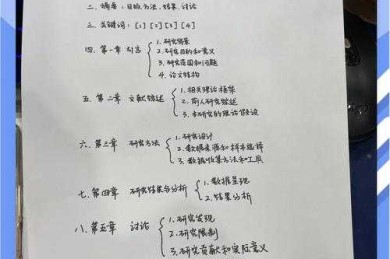 二. 摘要: 目的, 方法, 结果, 讨论
三. 关键词: [1] [2] [3] [4]
四. 第一章 引言
1. 研究背景
2. 研究目的和意义
3. 研究范围和问题
4. 论文结构
五. 第二章 文献综述
1. 相关理论框架
2. 前人研究综述
3. 本研究的理论假设
六. 第三章 研究方法
1. 研究设计
2. 数据来源和样本选择
3. 数据收集方法和工具
七. 第四章 研究结果与分析
1. 数据呈现
2. 结果分析
八. 第五章 讨论
1. 研究发现
2. 研究限制
3. 研究贡献和实际意义